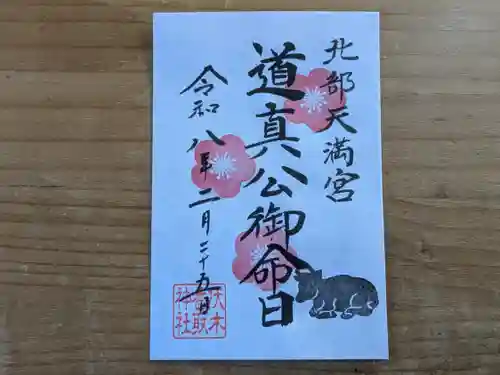 北部天満宮
道真公御命日
令和八年二月二十五日
神社